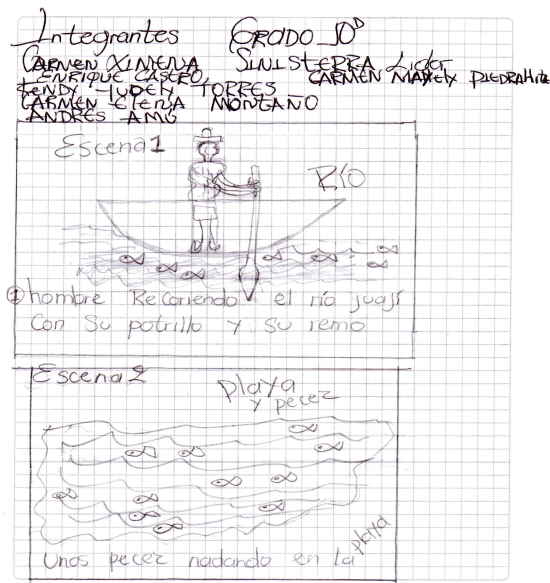 Integrantes Grado 10°
CARMEN XIMENA SINISTERRA Lider
ENRIQUE CASTRO, CARMEN MAYELY PIEDRAHITA
YENDY JUDELY TORRES
CARMEN ELENA MONTAÑO
ANDRES AMÚ
Escena 1
RÍO
① hombre Recorriendo el río juají
Con Su potrillo y su remo
Escena 2
Playa
y pecez
Unos pecez nadando en la playa